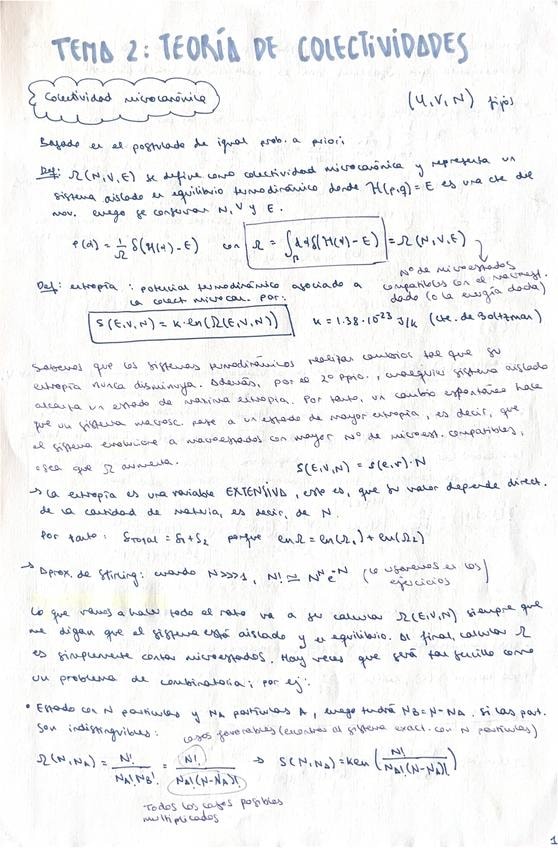 TEMA 2: TEORÍA DE COLECTIVIDADES
Colectividad microcanónica
(U,V,N) fijos
Basado en el postulado de igual prob. a priori:
Def: Ω(N,V,E) se define como colectividad microcanónica y representa un
sistema aislado en equilibrio termodinámico donde H(p,q)=E es una cte del
mov. Luego se conservan N, V y E.
ρ(α) = 1/Ω δ(H(α)-E) con Ω = ∫ dα δ(H(α)-E) = Ω(N,V,E)
Nº de microestados
compatibles con el macroest.
dado (o la energía dada)
Def: entropía: potencial termodinámico asociado a
la colect. microcan. por:
S(E,V,N) = k·ln(Ω(E,V,N)) k = 1.38·10⁻²³ J/K (cte. de Boltzmann)
Sabemos que los sistemas termodinámicos realizan cambios tal que su
entropía nunca disminuya. Además, por el 2º Ppio., cualquier sistema aislado
alcanza un estado de máxima entropía. Por tanto, un cambio espontáneo hace
que un sistema macrosc. pase a un estado de mayor entropía, es decir, que
el sistema evolucione a macroestados con mayor Nº de microest. compatibles,
o sea que Ω aumenta.
S(E,V,N) = s(e,v)·N
→ La entropía es una variable EXTENSIVA, esto es, que su valor depende direct.
de la cantidad de materia, es decir, de N.
Por tanto: Stotal = S1+S2 porque lnΩ = ln(Ω1) + ln(Ω2)
→ Aprox. de Stirling: cuando N>>>1, N! ≃ N^N e^-N (lo usaremos en los
ejercicios)
Lo que vamos a hacer todo el rato va a ser calcular Ω(E,V,N) siempre que
me digan que el sistema está aislado y en equilibrio. Al final, calcular Ω
es simplemente contar microestados. Hay veces que será tan sencillo como
un problema de combinatoria; por ej:
• Estado con N partículas y NA partículas A, luego tendrá NB = N-NA. Si las part.
son indistinguibles:
casos favorables (encontrar al sistema exact. con N partículas)
Ω(N,NA) = N!/(NA!NB!) = N!/(NA!(N-NA)!) → S(N,NA) = k ln(N!/(NA!(N-NA)!))
Todos los casos posibles
multiplicados
1